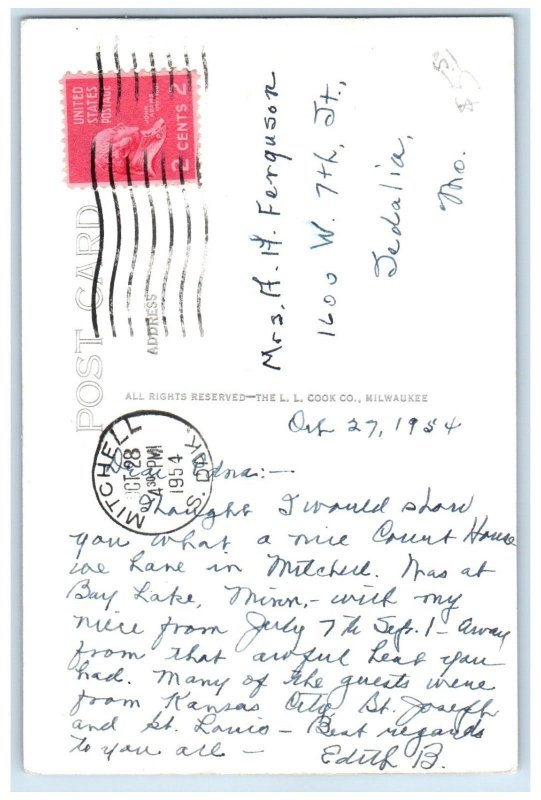 UNITED
STATES
POSTAGE
JOHN
ADAMS
2 CENTS 2
POST CARD
ADDRESS
Mrs. A. H. Ferguson
1600 W. 7th, St.,
Sedalia,
Mo.
ALL RIGHTS RESERVED—THE L. L. COOK CO., MILWAUKEE
MITCHELL
OCT 28
4 30 PM
1954
S. DAK.
Oct 27, 1954
Dear Edna:-
Thought I would show
you what a nice Court House
we have in Mitchell. Was at
Bay Lake, Minn,- with my
niece from July 7th Sept. 1 - away
from that awful heat you
had. Many of the guests were
from Kansas City, St. Joseph
and St. Louis - Best regards
to you all -
Edith B.